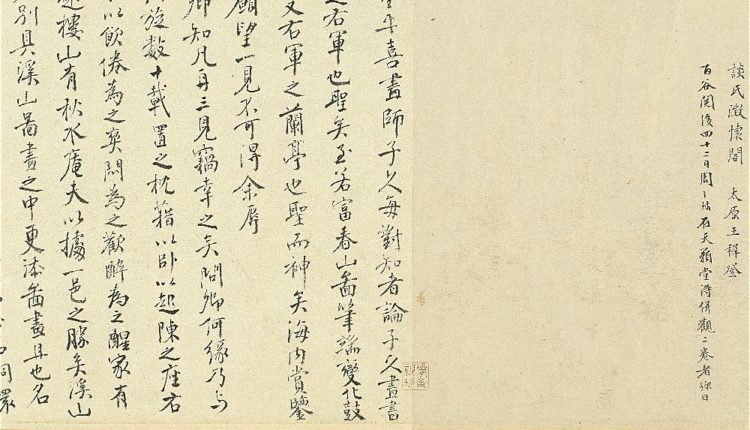 談氏澂懷閣 太原王穉登
百谷閱後四十二日周天球在天籟堂得併觀二卷者彌日
平喜畫師子久每對知者論子久畫書
之右軍也聖矣至若富春山圖筆端變化鼓
又右軍之蘭亭也聖而神矣海內賞鑒
願望一見不可得余辱
卿知凡再三見竊幸之矣問卿何緣乃與
旋數十載置之枕藉以臥以起陳之座右
以飲倦為之爽悶為之歡醉為之醒家有
起樓山有秋水庵夫以據一邑之勝矣溪山
別具溪山圖畫之中更添圖畫且也名
同環